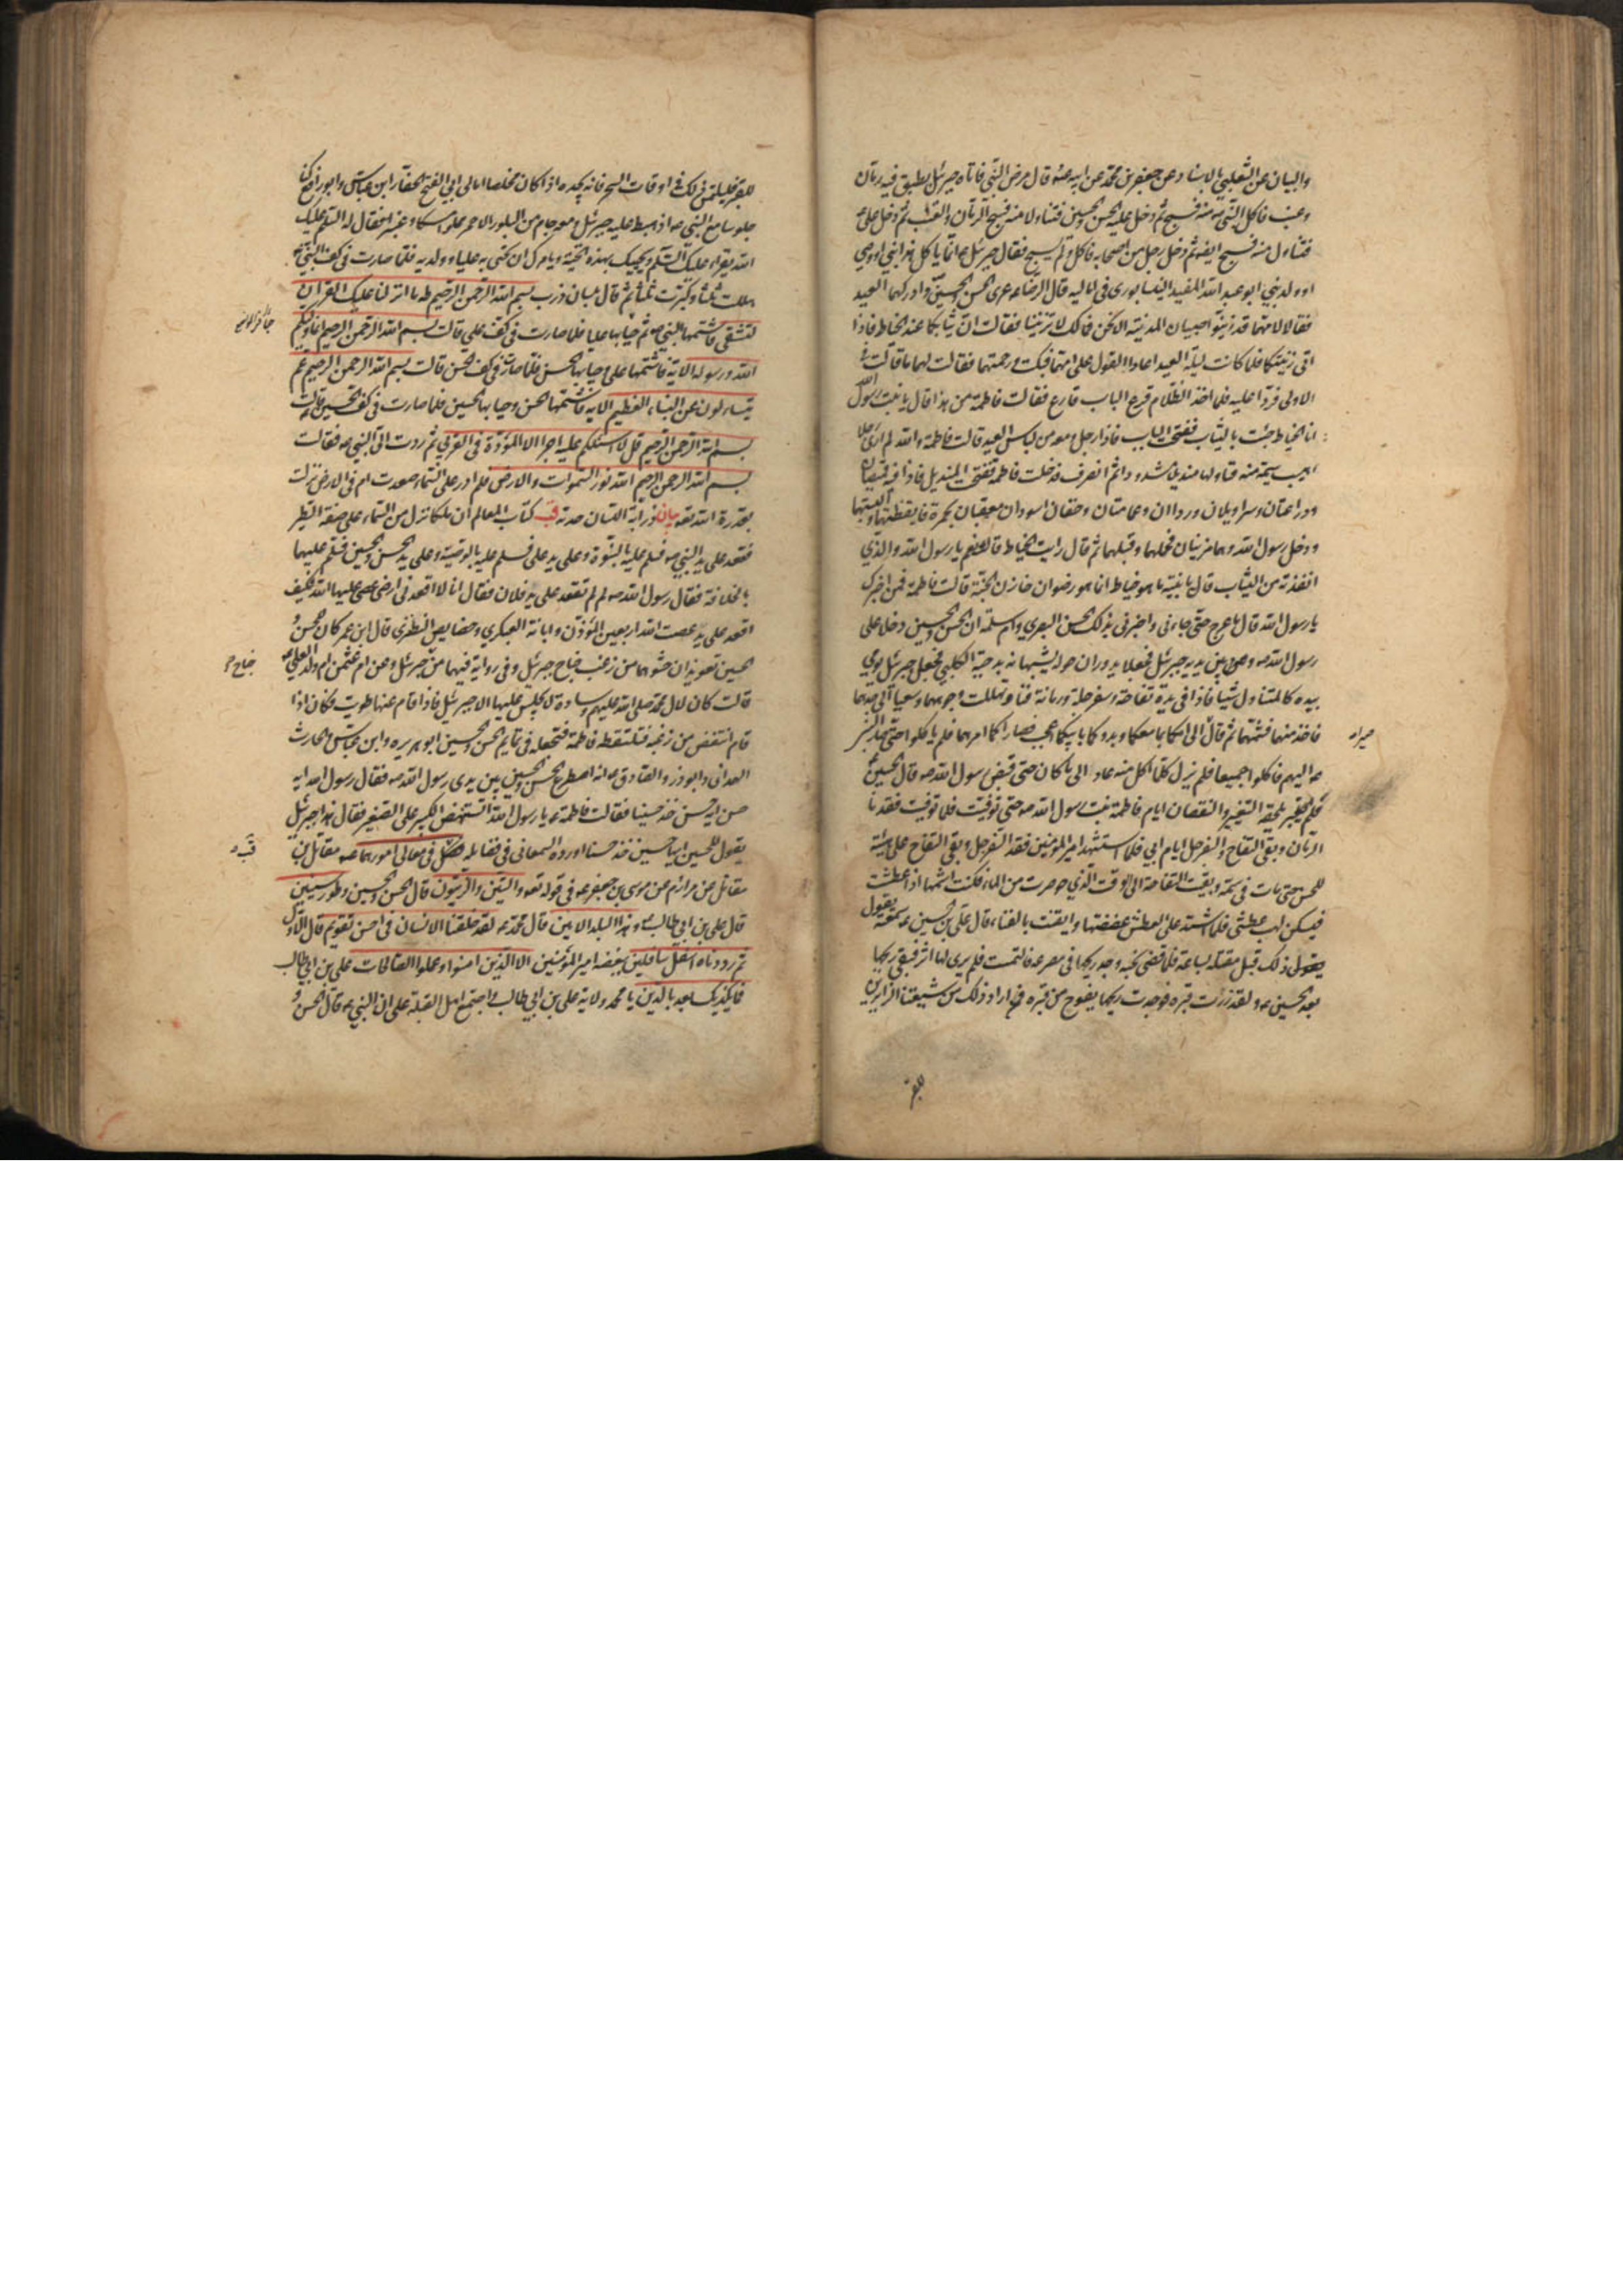 والبيان عن الثعلبي بالاسناد عن جعفر بن محمد عن ابيه عنه قال مرض النبي فاتاه جبرئيل بطبق فيه رمان
وعنب فاكل النبي ص منه فسبح ثم دخل عليه الحسن والحسين فتناولا منه فسبح الرمان والعنب ثم دخل علي ع
فتناول منه فسبح ايضا ثم دخل رجل من اصحابه فاكل ولم يسبح فقال جبرئيل ع انما ياكل هذا نبي او وصي
او ولد نبي ابو عبد الله المفيد النيسابوري في اماليه قال الرضا ع عري الحسن والحسين وادركهما العيد
فقالا لامهما قد زينوا صبيان المدينة الا نحن فما لك لا تزينينا فقالت ان ثيابكما عند الخياط فاذا
اتى زينتكما فلما كانت ليلة العيد اعادا القول على امهما فبكت ورحمتهما فقالت لهما ما قالت في
الاولى فردا عليه فلما اخذ الظلام قرع الباب قارع فقالت فاطمة من هذا قال يا بنت رسول الله
انا الخياط جئت بالثياب ففتحت الباب فاذا رجل معه من لباس العيد قالت فاطمة والله لم ار رجلا
اهيب سيمة منه فناولها منديلا مشدودا ثم انصرف فدخلت فاطمة ففتحت المنديل فاذا فيه قميصان
ودراعتان وسراويلان ورداان وعمامتان وخفان اسودان معقبان بحمرة فايقظتهما والبستهما
ودخل رسول الله وهما مزينان فحملهما وقبلهما ثم قال رايت الخياط قالت نعم يا رسول الله والذي
انفذته من الثياب قال يا بنية ما هو خياط انما هو رضوان خازن الجنة قالت فاطمة فمن اخبرك
يا رسول الله قال ما عرج حتى جاءني واخبرني بذلك الحسن البصري وام سلمة ان الحسن والحسين دخلا على
رسول الله ص وبين يديه جبرئيل فجعلا يدوران حوله يشبهانه بدحية الكلبي فجعل جبرئيل يومي
بيده كالمتناول شيئا فاذا في يده تفاحة وسفرجلة ورمانة فناولهما وتهللت وجوههما وسعيا الى جدهما
فاخذ منهما فشمهما ثم قال صيرا الى امكما بما معكما وبدوكما بابيكما اعجب فصارا كما امرهما فلم ياكلوا حتى صار النبي
ص اليهم فاكلوا جميعا فلم يزل كلما اكل منه عاد الى ما كان حتى قبض رسول الله ص قال الحسين ع
فلم يلحقه التغيير والنقصان ايام فاطمة بنت رسول الله ص حتى توفيت فلما توفيت فقدنا
الرمان وبقي التفاح والسفرجل ايام ابي فلما استشهد امير المؤمنين فقد السفرجل وبقي التفاح على هيئته
للحسن حتى مات في سمه وبقيت التفاحة الى الوقت الذي حوصرت عن الماء فكنت اشمها اذا عطشت
فيسكن لهب عطشي فلما اشتد علي العطش عضضتها وايقنت بالفناء قال علي بن الحسين ع سمعته يقول
ذلك قبل مقتله بساعة فلما قضى نحبه وجد ريحها في مصرعه فالتمست فلم ير لها اثر فبقي ريحها
بعد الحسين ع ولقد زرت قبره فوجدت ريحها يفوح من قبره فمن اراد ذلك من شيعتنا الزائرين
للقبر
للقبر فليلتمس ذلك في اوقات السحر فانه يجده اذا كان مخلصا امالي ابي الفتح الحفار ابن عباس وابو رافع كنا
جلوسا مع النبي ص اذ هبط عليه جبرئيل ومعه جام من البلور الاحمر مملو مسكا وعنبرا فقال له السلم عليك
الله يقرء عليك السلم ويحييك بهذه التحية ويامرك ان تحيي به عليا وولديه فلما صارت في كف النبي ص
هللت ثلثا وكبرت ثلثا ثم قالت بلسان ذرب بسم الله الرحمن الرحيم طه ما انزلنا عليك القران
لتشقى فاشتمها النبي ص ثم حيا بها عليا فلما صارت في كف علي قالت بسم الله الرحمن الرحيم انما وليكم
الله ورسوله الاية فاشتمها علي وحيا بها الحسن فلما صارت في كف الحسن قالت بسم الله الرحمن الرحيم عم
يتساءلون عن النباء العظيم الاية فاشتمها الحسن وحيا بها الحسين فلما صارت في كف الحسين قالت
بسم الله الرحمن الرحيم قل لا اسئلكم عليه اجرا الا المودة في القربى ثم ردت الى النبي ص فقالت
بسم الله الرحمن الرحيم الله نور السموات والارض فلم ادر على السماء صعدت ام في الارض نزلت
بقدرة الله تعه بيان ذرابة اللسان حدته قب كتاب المعالم ان ملكا نزل من السماء على صفة الطير
فقعد على يد النبي ص فسلم عليه بالنبوة وعلى يد علي فسلم عليه بالوصية وعلى يد الحسن والحسين فسلم عليهما
بالخلافة فقال رسول الله ص لم لم تقعد على يد فلان فقال انا لا اقعد في ارض عصي عليها الله فكيف
اقعد على يد عصت الله اربعين المؤذن وابانة العكبري وخصايص النطنزي قال ابن عمر كان للحسن و
الحسين تعويذان حشوهما من زغب جناح جبرئيل وفي رواية فيهما من جناح جبرئيل وعن ام عثمن ام ولد لعلي ع
قالت كان لال محمد صلى الله عليهم وسادة لا يجلس عليها الا جبرئيل فاذا قام عنها طويت فكان اذا
قام انتفض من زغبه فتلتقطه فاطمة فتجعله في تمايم الحسن والحسين ابو هريره وابن عباس والحارث
الهمداني وابو ذر والصادق ع انه اصطرع الحسن والحسين بين يدي رسول الله ص فقال رسول الله ايه
حسن ايه حسن خذ حسينا فقالت فاطمة ع يا رسول الله استنهض الكبير على الصغير فقال هذا جبرئيل
يقول للحسين ايها حسين خذ حسنا اورده السمعاني في فضايله فصل في معالي امورهما ع مقاتل بن
مقاتل عن مرازم عن موسى بن جعفر ع في قوله تعه والتين والزيتون قال الحسن والحسين وطور سينين
قال علي بن ابي طالب ع وهذا البلد الامين قال محمد ص لقد خلقنا الانسان في احسن تقويم قال الاول
ثم رددناه اسفل سافلين ببغضه امير المؤمنين الا الذين امنوا وعملوا الصالحات علي بن ابي طالب
فما يكذبك بعد بالدين يا محمد ولاية علي بن ابي طالب ع واجتمع اهل القبلة على ان النبي ص قال الحسن و